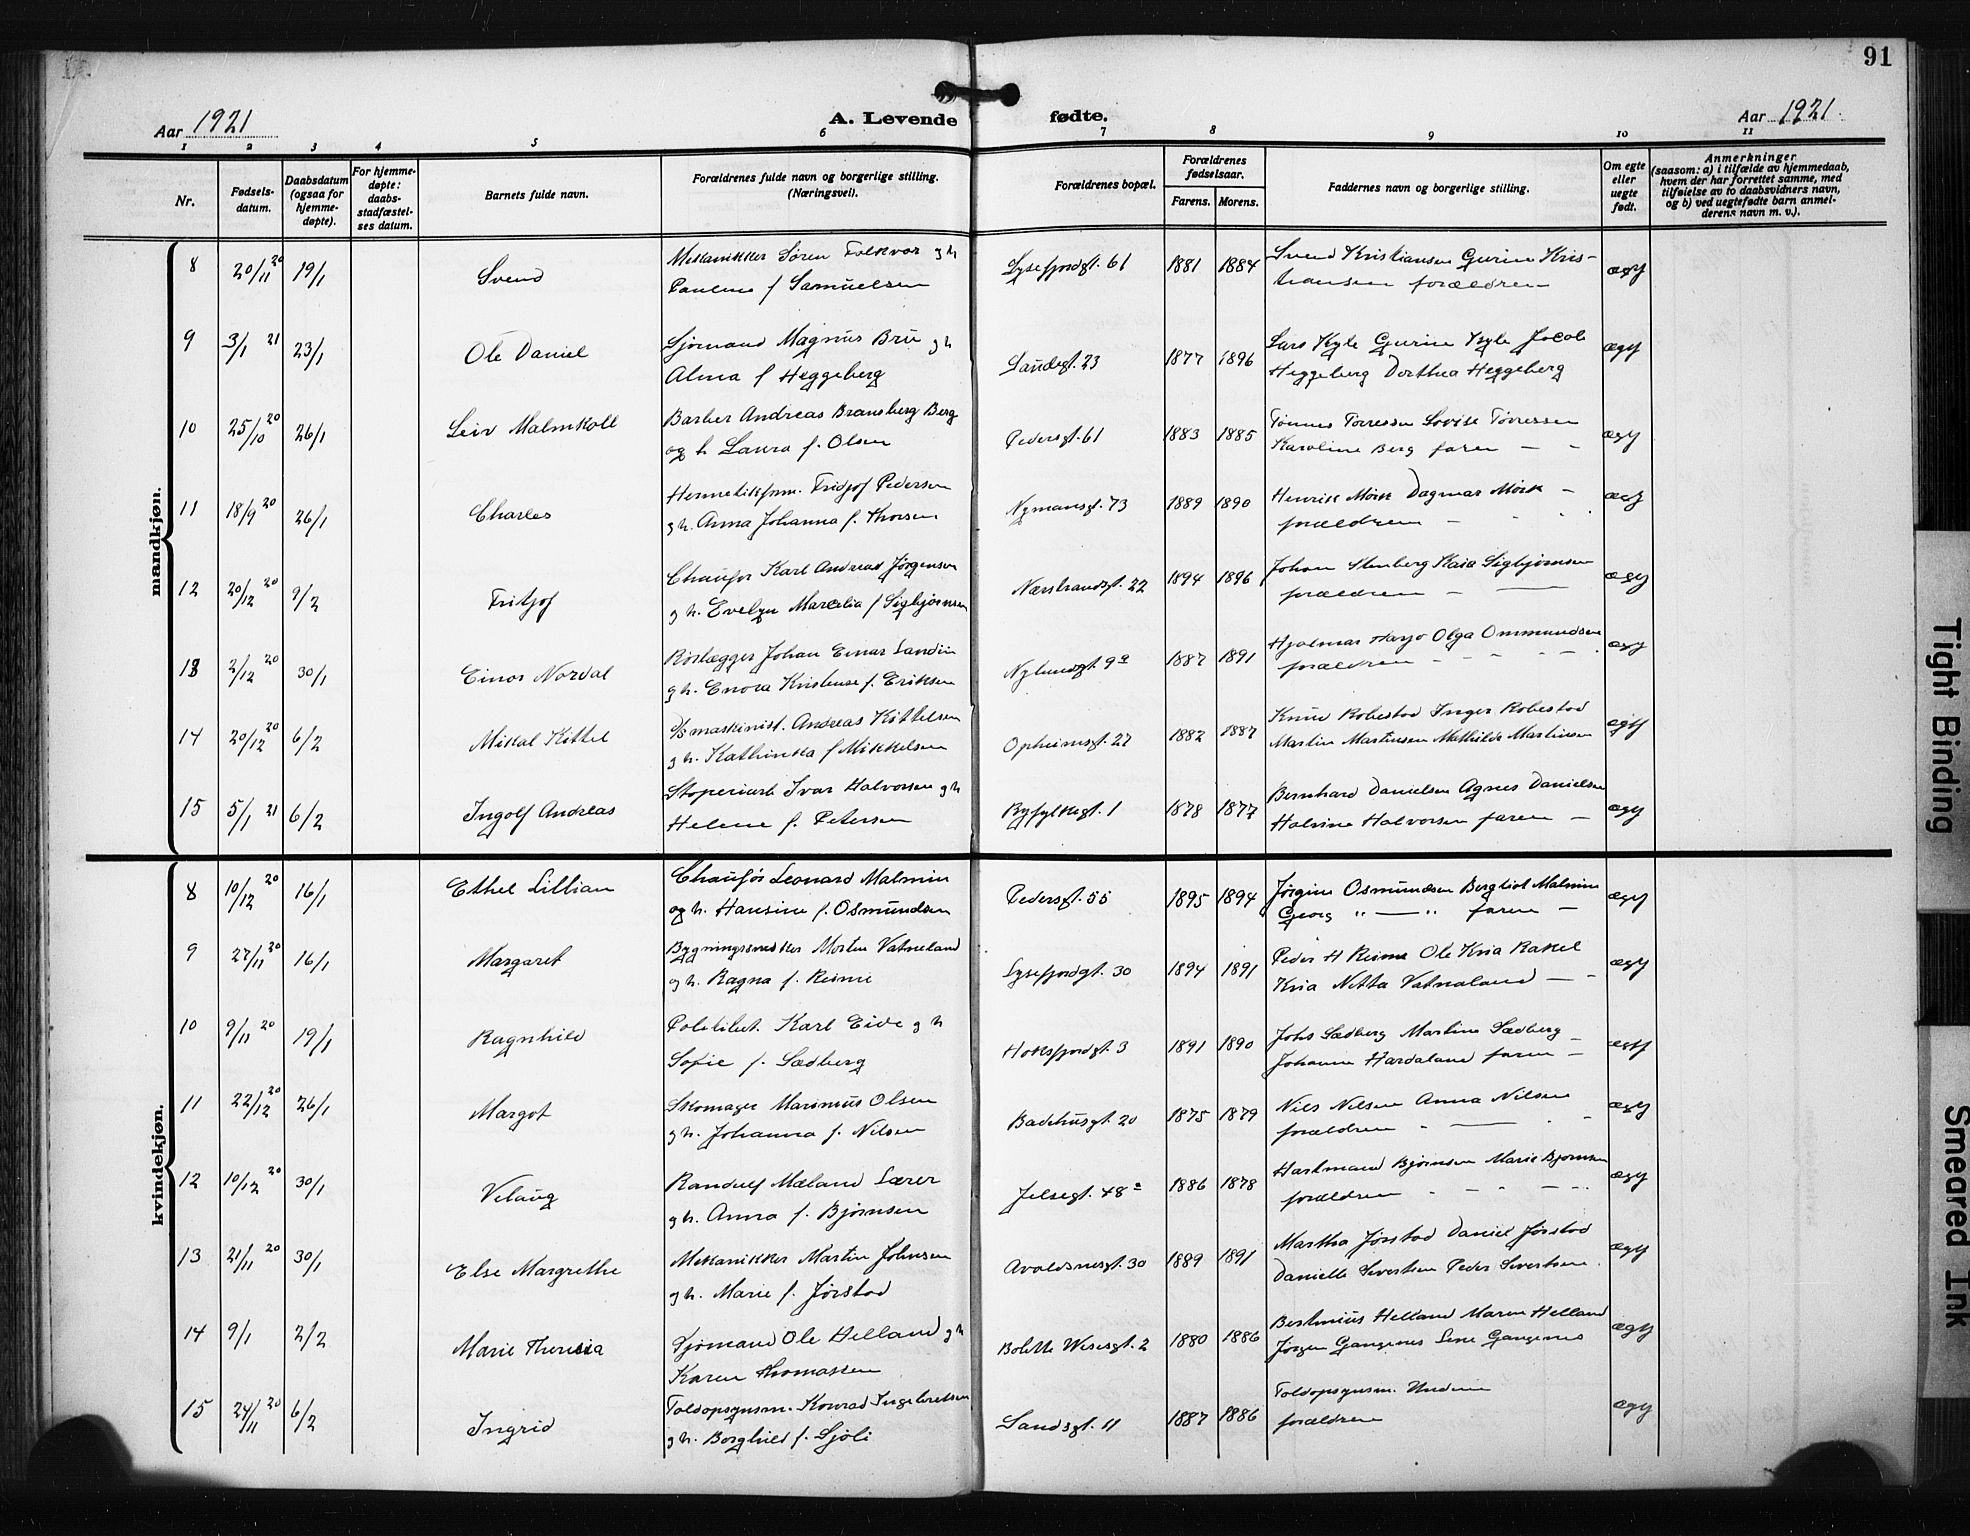 91
Aar 1921 A. Levende fødte. Aar 1921.
1 2 3 4 5 6 7 8 9 10 11
Nr. Fødsels-datum. Daabsdatum (ogsaa for hjemme-døpte). For hjemme-døpte: daabs-stadfæstel-ses datum. Barnets fulde navn. Forældrenes fulde navn og borgerlige stilling. (Næringsvei). Forældrenes bopæl. Forældrenes fødselsaar. Farens. Morens. Faddernes navn og borgerlige stilling. Om egte eller uegte født. Anmerkninger (saasom: a) i tilfælde av hjemmedaab, hvem der har forrettet samme, med tilføielse av to daabsvidners navn, og b) ved uegtefødte barn anmel-derens navn m. v.).
mandkjøn.
8 20/11 20 19/1 Svend Mekanikker Søren Folkvor g h Lysefjordgt. 61 1881 1884 Svend Kristiansen Gurine Kris- ægt
Pauline f Samuelsen tiansen forældren
9 3/1 21 23/1 Ole Daniel Sjømand Magnus Bru g h Sandsgt. 23 1877 1896 Lars Kyle Gurine Kyle Jacob ægt
Alma f Heggeberg Heggeberg Dorthea Heggeberg
10 25/10 20 26/1 Leiv Malmkoll Barber Andreas Bransberg Berg Pedersgt. 61 1883 1885 Tønnes Tørressen Lovise Tørressen ægt
og h Laura f. Olsen Karoline Berg faren
11 18/9 20 26/1 Charles Hermetikfom. Fridjof Pedersen Nymansgt. 73 1889 1890 Henrik Mörk Dagmar Mörk ægt
g h. Anna Johanna f. Thorsen forældren
12 20/12 20 9/2 Fritjof Chaufør Karl Andreas Jørgensen Nærstrandsgt. 22 1894 1896 Johan Stenberg Kaia Sigbjørnsen ægt
g h. Evelyn Marcelia f Sigbjørnsen forældren
13 2/12 20 30/1 Einar Nordal Rørlægger Johan Einar Sandin Nylundsgt. 9a 1887 1891 Hjalmar Olga Ommundsen ægt
g h. Enora Kristense f. Eriksen forældren
14 20/12 20 6/2 Mikal Kittel D/S maskinist. Andreas Kittelsen Opheimsgt. 27 1882 1887 Knud Robestad Inger Robestad ægt
g h. Kathinka f Mikkelsen Martin Martinsen Mathilde Martinsen
15 5/1 21 6/2 Ingolf Andreas Støperiarb Ivar Halvorsen g h Ryfylkegt. 1 1878 1877 Bernhard Danielsen Agnes Danielsen ægt
Helene f. Petersen Halvine Halvorsen faren
kvindekjøn.
8 10/12 20 16/1 Ethel Lillian Chaufør Leonard Malmin Pedersgt. 55 1895 1894 Jørgine Osmundsen Bergliot Malmin ægt
og h. Hansine f. Osmundsen Georg " — " faren
9 27/11 20 16/1 Margaret Bygningssnekker Morten Vatneland Lysefjordgt. 30 1894 1891 Peder H Reime Ole Kria Rakel ægt
g h. Ragna f. Reime Kria Netta Vatnaland
10 9/11 20 19/1 Ragnhild Politibet. Karl Eide g h Høksfjordgt. 3 1891 1890 Johs Sædberg Martine Sædberg ægt
Sofie f. Sædberg Johanne Hardaland faren
11 22/12 20 26/1 Margot Skomager Marinius Olsen Badehusgt. 20 1875 1879 Nils Nilsen Anna Nilsen ægt
g h. Johanna f. Nilsen forældren
12 10/12 20 30/1 Velaug Randulf Mæland Lærer Jelsegt. 48a 1886 1878 Hartmand Bjørnsen Marie Bjørnsen ægt
g h. Anna f. Bjørnsen forældren
13 21/11 20 30/1 Else Margrethe Mekanikker Martin Johnsen Avaldsnesgt. 30 1889 1891 Martha Jørstad Daniel Jørstad ægt
g h. Marie f. Jørstad Danielle Sivertsen Peder Sivertsen
14 9/1 2/2 Marie Theresia Sjømand Ole Helland g h Bolette Wiesgt. 2 1880 1886 Helland Maren Helland ægt
Karen Thomassen Jörgen Gangenes Sine Gangenes
15 24/11 20 6/2 Ingrid Toldopsynsm. Konrad Ingebretsen Sandsgt. 11 1887 1886 Toldopsynsm. ægt
g h. Borghild f. Sjøli forældren
Tight Binding
Smeared Ink